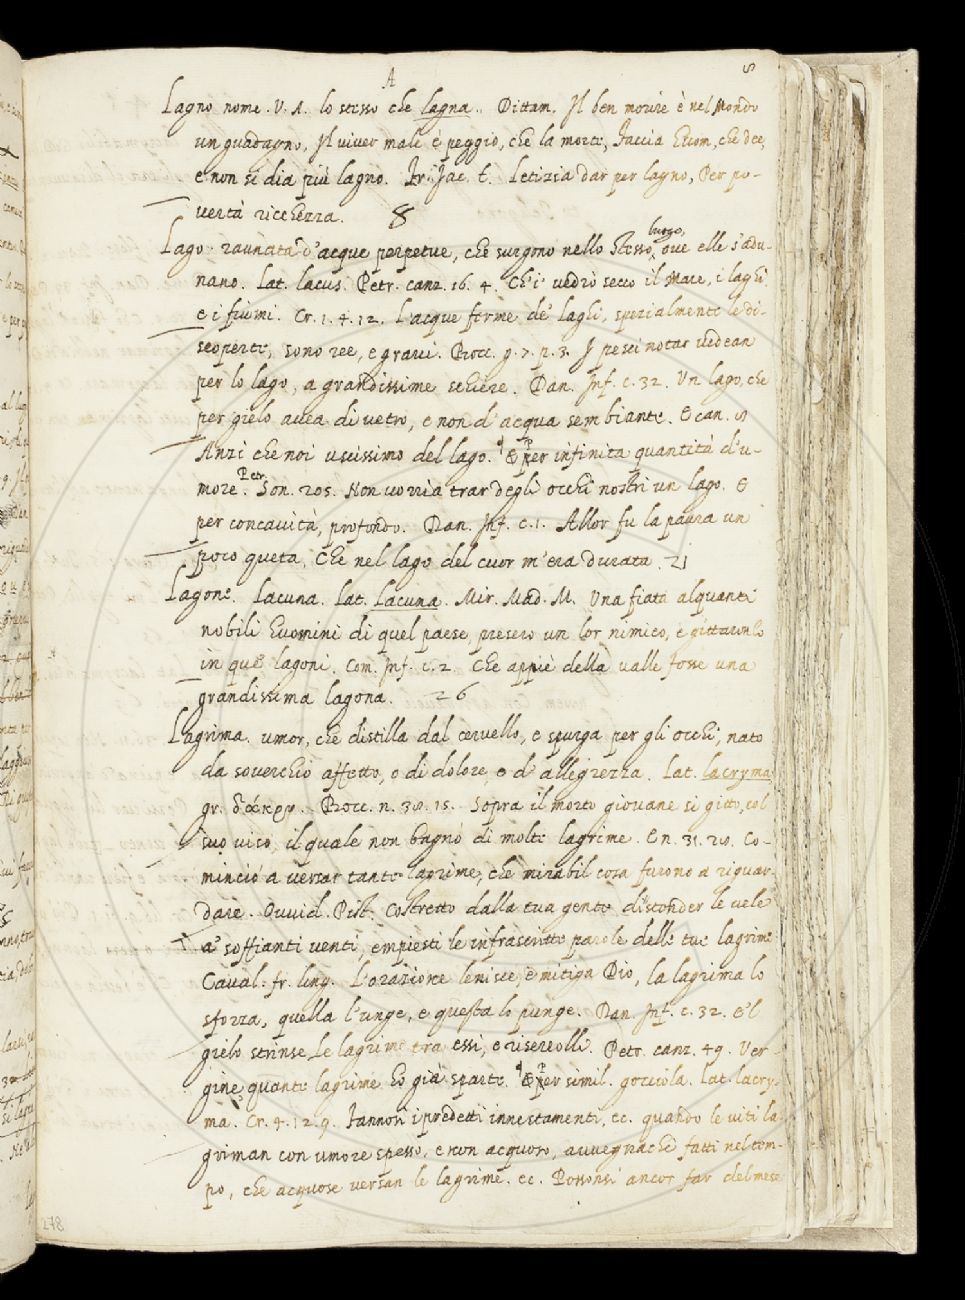 A
5
Lagno nome. V. A. lo stesso che lagna. Dittam. Il ben morire è nel Mondo
un guadagno, Il viver male è peggio, che la morte, Faccia huom, che dee,
e non si dia più lagno. Fr. Iac. t. Letizia dar per lagno, Per po-
vertà ricchezza. 8
Lago raunata d'acque perpetue, che surgono nello stesso luogo, oue elle s'adu-
nano. Lat. lacus. Petr. canz. 16. 4. Ch'i' vedrò secco il Mare, i laghi
e i fiumi. Cr. 1. 4. 12. L'acque ferme de' laghi, spezialmente le di-
scoperte, sono ree, e graui. Bocc. g. 7. p. 3. I pesci notar vedean
per lo lago, a grandissime schiere. Dan. Inf. c. 32. Un lago, che
per gielo auea di vetro, e non d'acqua sembiante. E can. 5
Anzi che noi uscissimo del lago. E per infinita quantità d'u-
more. Petr. Son. 205. Non vo' mia trar degli occhi nostri un lago. E
per concauità, profondo. Dan. Inf. c. 1. Allor fu la paura un
poco queta, Che nel lago del cuor m'era durata. 21
Lagone. Lacuna. Lat. Lacuna. Mir. Mad. M. Una fiata alquanti
nobili huomini di quel paese, presero un lor nimico, e gittaronlo
in que' lagoni. Com. Inf. c. 2. Che appiè della valle fosse una
grandissima lagona. 26
Lagrima. umor, che distilla dal ceruello, e spurga per gli occhi, nato
da souerchio affetto, o di dolore, o d'allegrezza. Lat. lacryma
gr. δάκρυ. Bocc. n. 38. 15. Sopra il morto giouane si gittò, col
suo viso, il quale non bagnò di molte lagrime. E n. 31. 28. Co-
minciò a versar tante lagrime, che mirabil cosa furono a riguar-
dare. Ouuid. Pist. Costretto dalla tua gente distender le vele
a' soffianti venti, empiesti le infrascritte parole delle tue lagrime
Caual. fr. ling. L'orazione lenisce, e mitiga Dio, la lagrima lo
sforza, quella l'unge, e questa lo punge. Dan. Inf. c. 32. E 'l
gielo strinse le lagrime tra essi, e riserrolli. Petr. canz. 49. Ver-
gine quante lagrime ho già sparte. E per simil. gocciola. Lat. lacry-
ma. Cr. 4. 12. 9. Fannosi i predetti innestamenti, ec. quando le viti la-
griman con umore spesso, e non acquoso, auuegnachè fatti nel tem-
po, che acquose versan le lagrime. ec. Possonsi ancor far del mese
278